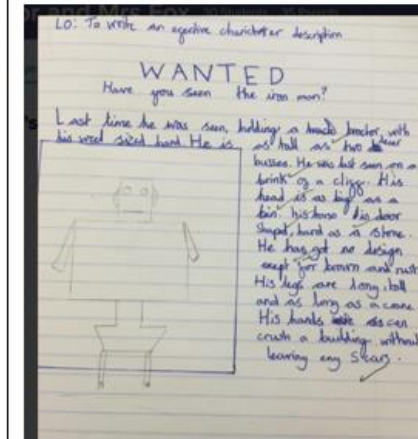 or and Mrs Fox
LO: To write an egective charichter description
WANTED
Have you seen the iron man?
Last time he was seen, holding a tractor, with
his sized hand. He is as tall as two decer
busses. He was last seen on a
brink og a cligg. His
head is as big as a
bin. his door
shaped, hard as a stone.
He has got no design
exept for brown and rust
His legs are long, tall
and as long as a crane
His hands can
crush a building without
leaving eny scars.